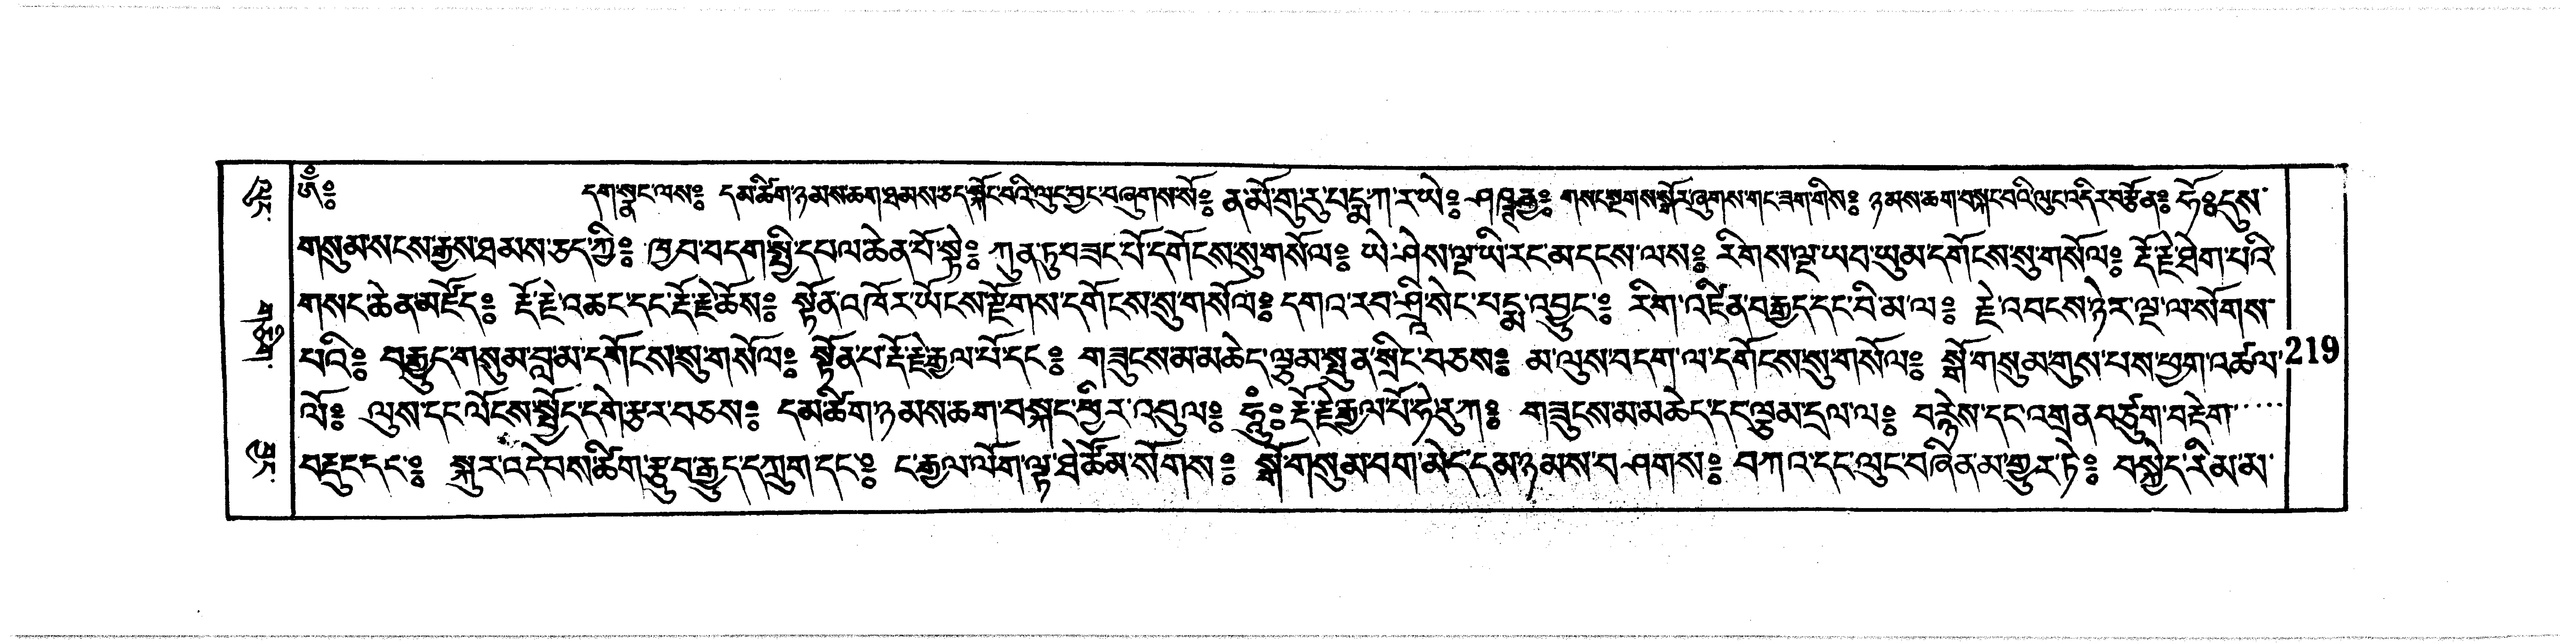 ༀ༔ དག་སྣང་ལས༔ དམ་ཚིག་ཉམས་ཆག་ཐམས་ཅད་སྐོང་བའི་ལུང་བྱང་བཞུགས་སོ༔ ན་མོ་གུ་རུ་པདྨ་ཀ་ར་ཡེ༔ གསང་སྔགས་སྒོར་ཞུགས་གང་ཟག་གིས༔ ཉམས་ཆག་བསྐང་བའི་ལུང་འདིར་བརྩོན༔ ཧོ༔ དུས་
གསུམ་སངས་རྒྱས་ཐམས་ཅད་ཀྱི༔ ཁྱབ་བདག་སྤྱི་དཔལ་ཆེན་པོ་སྟེ༔ ཀུན་ཏུ་བཟང་པོ་དགོངས་སུ་གསོལ༔ ཡེ་ཤེས་ལྔ་ཡི་རང་མདངས་ལས༔ རིགས་ལྔ་ཡབ་ཡུམ་དགོངས་སུ་གསོལ༔ རྡོ་རྗེ་ཐེག་པའི་
གསང་ཆེན་མཛོད༔ རྡོ་རྗེ་འཆང་དང་རྡོ་རྗེ་ཆོས༔ སྟོན་འཁོར་ཡོངས་རྫོགས་དགོངས་སུ་གསོལ༔ དགའ་རབ་ཤྲཱི་སེང་པདྨ་འབྱུང་༔ རིག་འཛིན་བརྒྱད་དང་བི་མ་ལ༔ རྗེ་འབངས་ཉེར་ལྔ་ལ་སོགས་
པའི༔ བརྒྱུད་གསུམ་བླ་མ་དགོངས་སུ་གསོལ༔ སྟོན་པ་རྡོ་རྗེ་རྒྱལ་པོ་དང་༔ གཟུངས་མ་མཆེད་ལྕམ་སྤུན་སྲིང་བཅས༔ མ་ལུས་བདག་ལ་དགོངས་སུ་གསོལ༔ སྒོ་གསུམ་གུས་པས་ཕྱག་འཚལ་
ལོ༔ ལུས་དང་ལོངས་སྤྱོད་དགེ་རྩར་བཅས༔ དམ་ཚིག་ཉམས་ཆག་བསྐང་ཕྱིར་འབུལ༔ ཧཱུྃ༔ རྡོ་རྗེ་རྒྱལ་པོ་ཧེ་རུ་ཀ༔ གཟུངས་མ་མཆེད་དང་ལྕམ་དྲལ་ལ༔ བརྙེས་དང་འགྲན་བཙུག་བརྡེག་
བརྡུང་དང་༔ སྐུར་འདེབས་ཚིག་རྩུབ་རྒྱུད་དཀྲུག་དང་༔ ང་རྒྱལ་ལོག་ལྟ་ཐེ་ཚོམ་སོགས༔ སྒོ་གསུམ་བག་མེད་དམ་ཉམས་བཤགས༔ བཀའ་དང་ལུང་བཞིན་མ་གྱུར་ཏེ༔ བསྐྱེད་རིམ་མ་
219